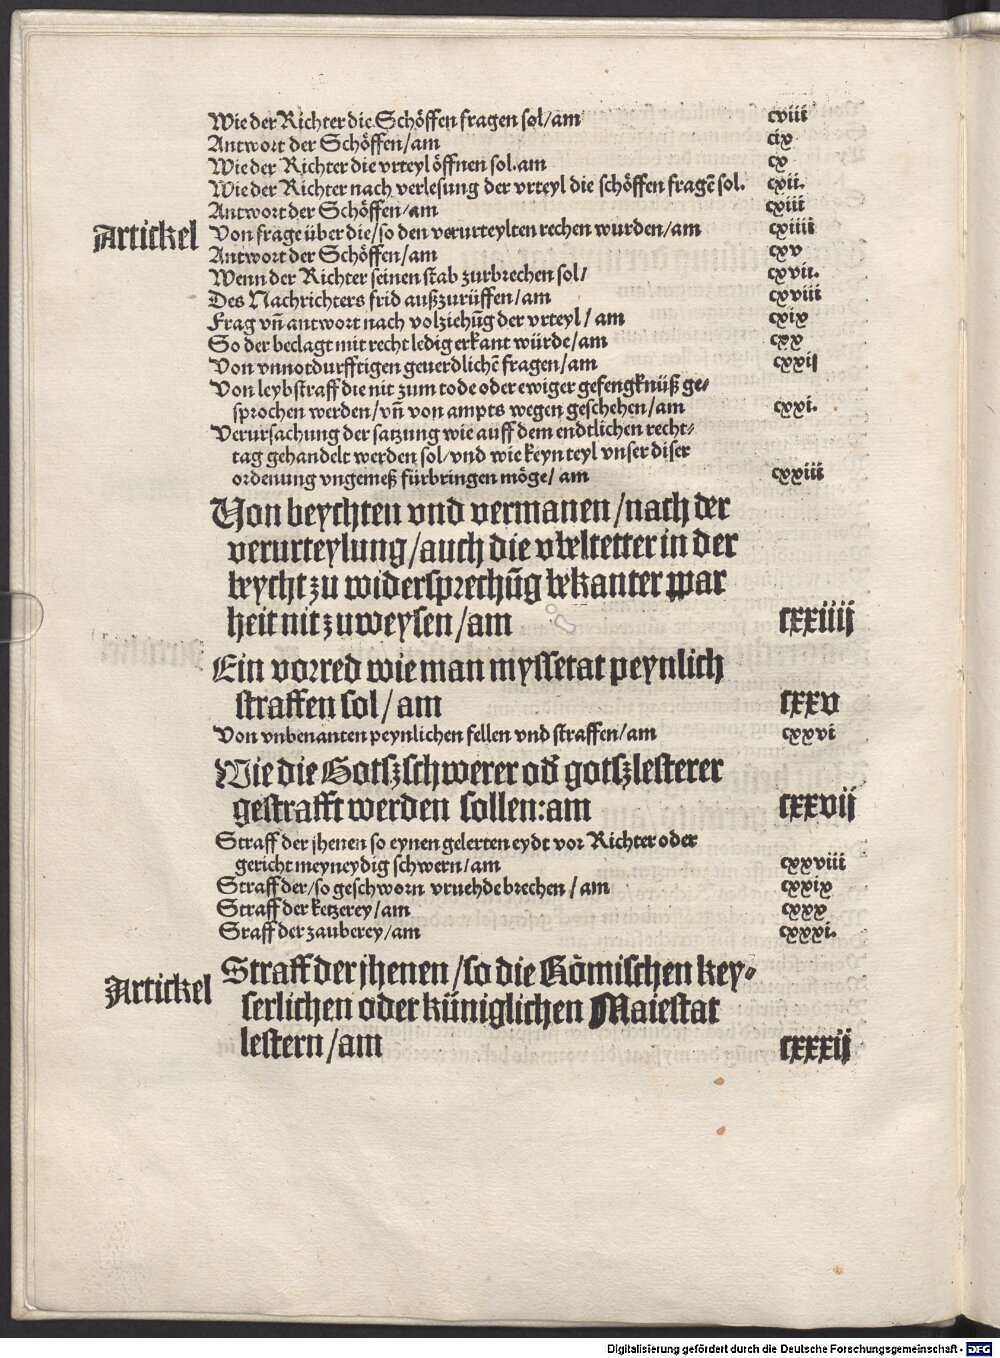 Wie der Richter die Schöffen fragen sol/am cviii
Antwort der Schöffen/am cix
Wie der Richter die vrteyl öffnen sol.am cx
Wie der Richter nach verlesung der vrteyl die schöffen fragē sol. cxii.
Antwort der Schöffen/am cxiii
Artickel Von frage über die/so den verurteylten rechen wurden/am cxiiii
Antwort der Schöffen/am cxv
Wenn der Richter seinen stab zurbrechen sol/ cxvii.
Des Nachrichters frid außzurüffen/am cxviii
Frag vn̄ antwort nach volziehūg der vrteyl/am cxix
So der beclagt mit recht ledig erkant würde/am cxx
Von vnnotdurfftigen geuerdlichē fragen/am cxxij
Von leybstraff die nit zum tode oder ewiger gefengknüß ge⸗
sprochen werden/vn̄ von ampts wegen geschehen/am cxxi.
Verursachung der satzung wie auff dem endtlichen recht⸗
tag gehandelt werden sol/vnd wie keyn teyl vnser diser
ordenung vngemeß fürbringen möge/am cxxiii
Von beychten vnd vermanen/nach der
verurteylung/auch die vbeltetter in der
beycht zu widersprechūg bekanter war
heit nit zuweysen/am cxxiiij
Ein vorred wie man myssetat peynlich
straffen sol/am cxxv
Von vnbenanten peynlichen fellen vnd straffen/am cxxvi
Wie die Gotszschwerer od̄ gotszlesterer
gestrafft werden sollen:am cxxvij
Straff der jhenen so eynen gelerten eydt vor Richter oder
gericht meyneydig schwern/am cxxviii
Straff der/so geschworn vruehde brechen/am cxxix
Straff der ketzerey/am cxxx
Sraff der zauberey/am cxxxi.
Artickel Straff der jhenen/so die Römischen key⸗
serlichen oder küniglichen Maiestat
lestern/am cxxxij
Digitalisierung gefördert durch die Deutsche Forschungsgemeinschaft - DFG